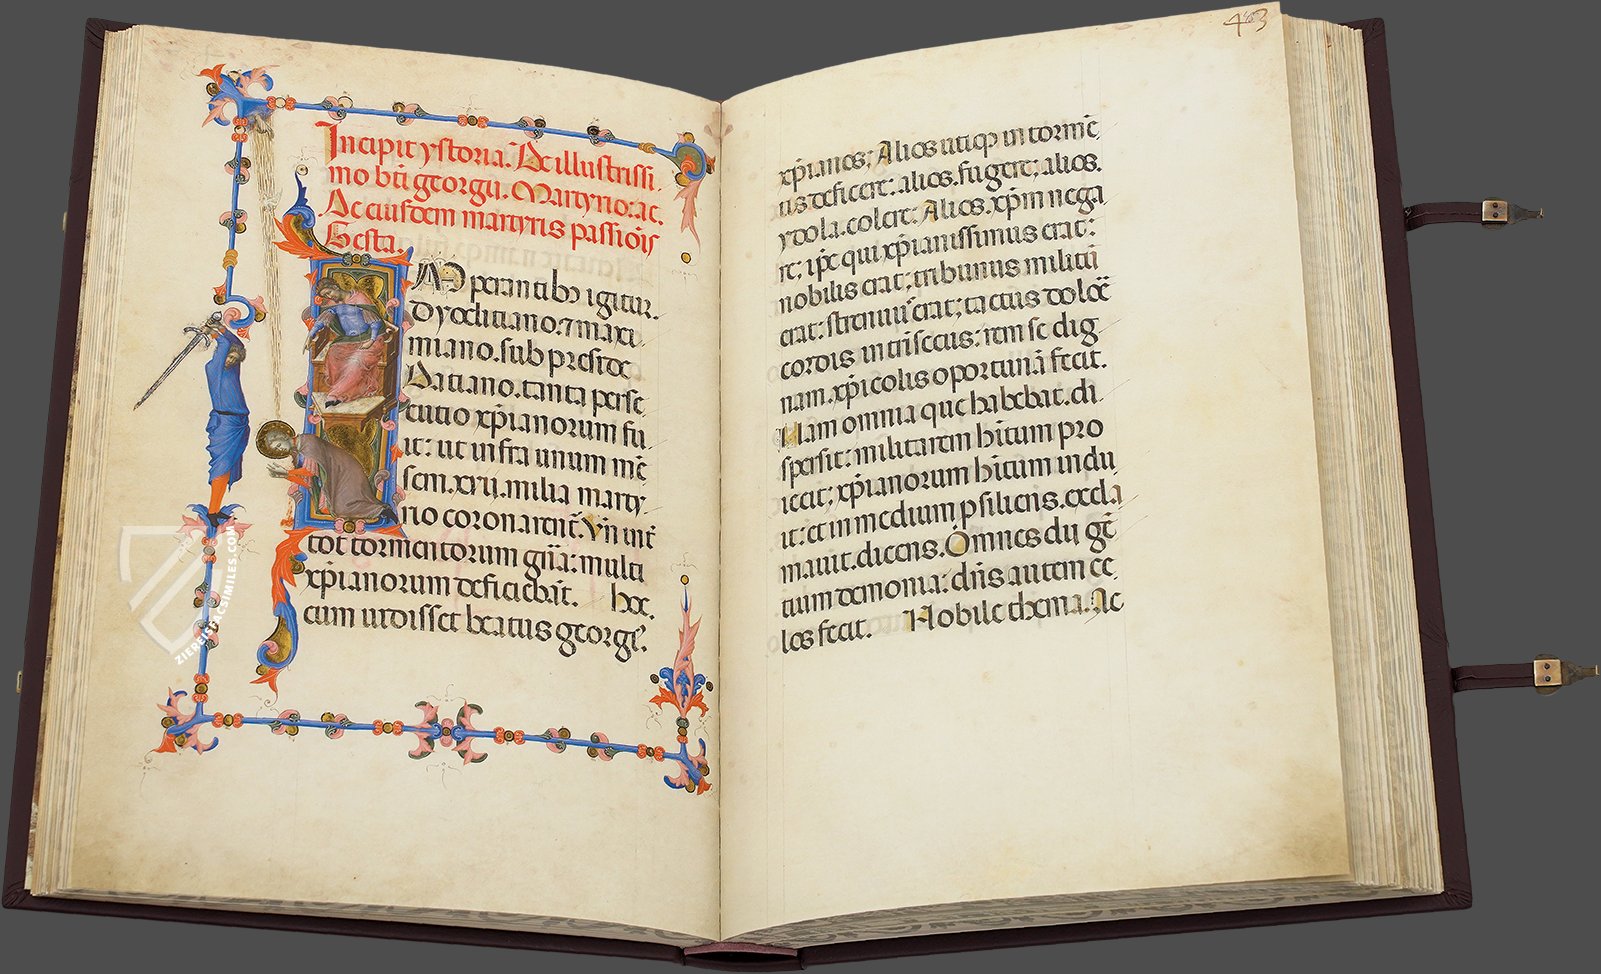 Incipit ystoria. De illustrissi
mo bti georgii. Martyrio: ac.
De eiusdem martyris passiois
Gesta.
perantibus igitur.
Dyoclitiano. 7 maxi
miano. sub preside
Datiano. tanta perse
cutio xpianorum fu
it: ut infra unum me
sem. xvii. milia marty
rio coronarent.
tot tormentorum gna: multi
xpianorum deficiebat. hec.
cum vidisset beatus george.
403
xpianos; Alios utiqz in torme
tis deficere: alios. fugere; alios.
ydola. colere: Alios. xpm nega
re; ipe qui xpianissimus erat:
nobilis erat; tribunus militu
erat: strenuu erat; tactus doloe
cordis intrisecus: rem se dig
nam. xpicolis oportuna fecit.
Nam omnia que habebat. di
spersit: militarem hitum pro
iecit; xpianorum hitum indu
it: et in medium psiliens. excla
mauit. dicens. Omnes dii ge
tium demonia: dns autem ce.
los fecit. Nobile thema. Ac
ZIEREIS FACSIMILES.COM